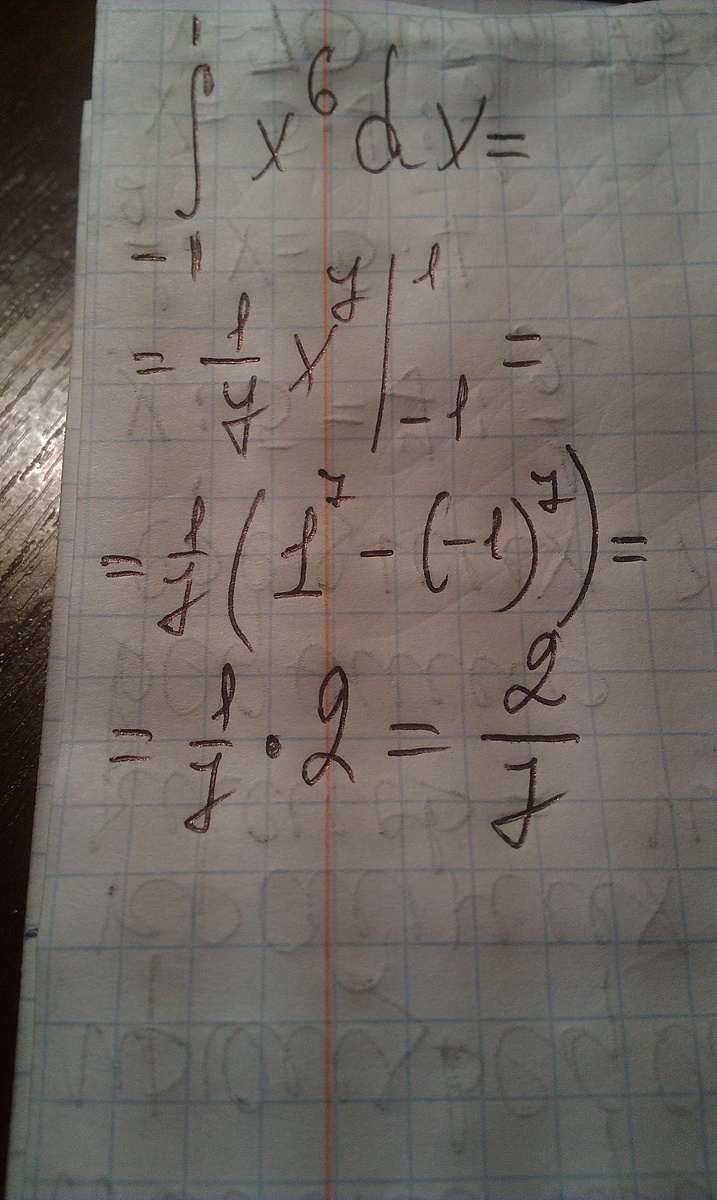 ∫_{-1}^{1} x^6 dx =
= 1/7 x^7 |_{-1}^{1} =
= 1/7 (1^7 - (-1)^7) =
= 1/7 · 2 = 2/7